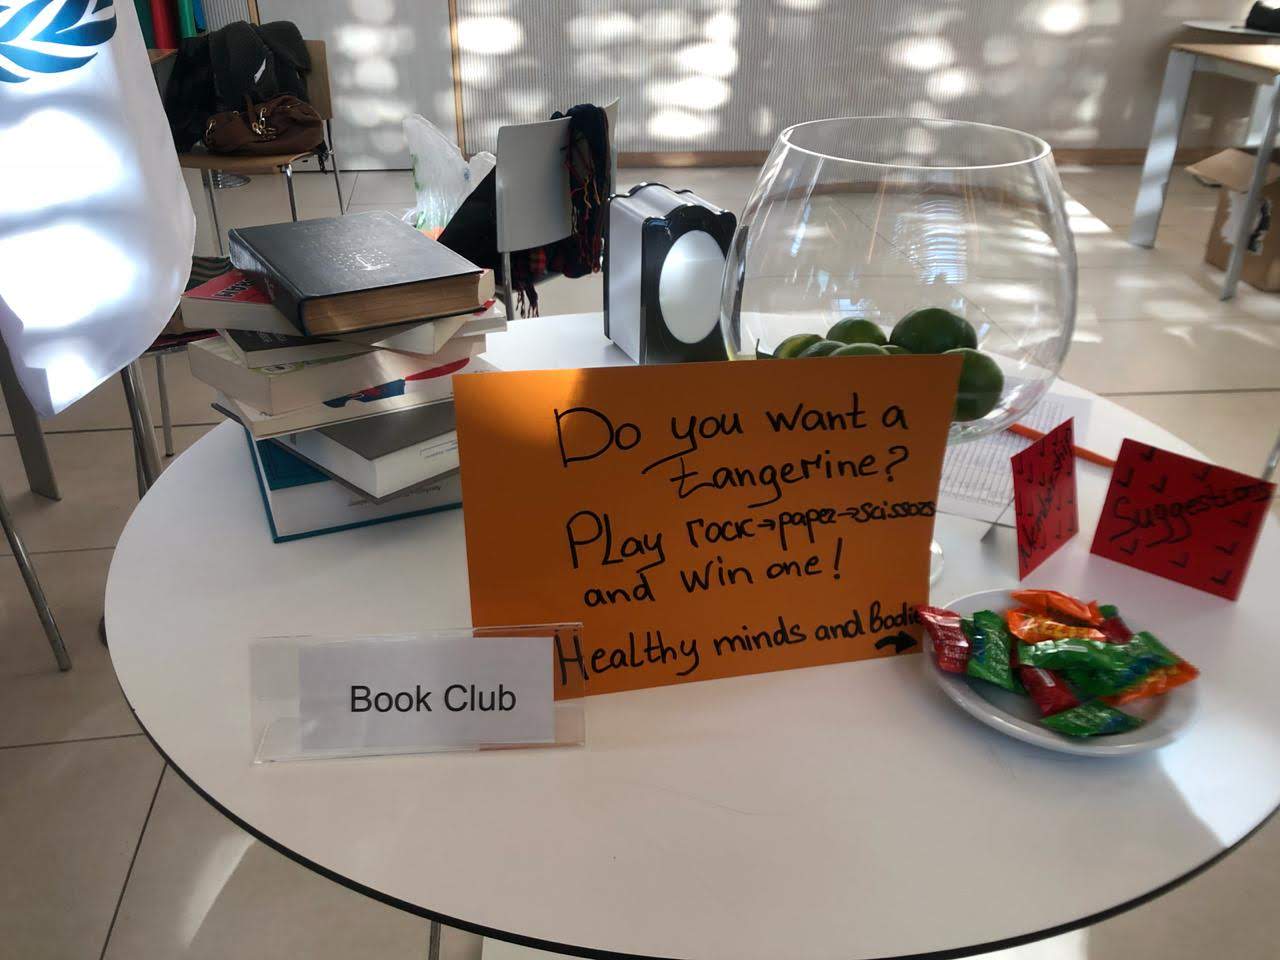 Do you want a
tangerine?
Play rock→paper→scissors
and win one!
Healthy minds and Bodie
Book Club
Membership
Suggestions